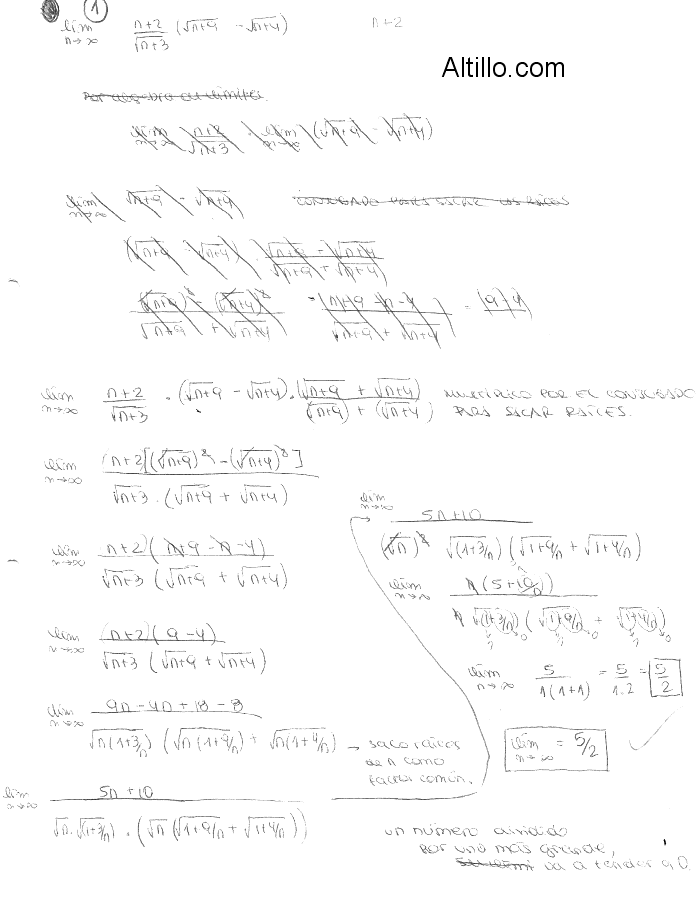 1
lím n→∞ n+2/√n+3 (√n+9 - √n+4) n+2
Altillo.com
Por algebra de límites.
lím n→∞ n+2/√n+3 · lím n→∞ (√n+9 - √n+4)
lím n→∞ √n+9 - √n+4 CONJUGADO PARA SACAR LAS RAÍCES
(√n+9 - √n+4) · √n+9 - √n+4/√n+9 + √n+4)
(√n+9)² - (√n+4)²/√n+9 + √n+4 = (n+9 - n - 4)/√n+9 + √n+4) = (9-4)
lím n→∞ n+2/√n+3 · (√n+9 - √n+4) · (√n+9 + √n+4)/(√n+9) + (√n+4) MULTIPLICO POR EL CONJUGADO
PARA SACAR RAÍCES.
lím n→∞ (n+2)[(√n+9)² - (√n+4)²]/√n+3 · (√n+9 + √n+4)
lím n→∞ (n+2)(n+9 - n - 4)/√n+3 (√n+9 + √n+4)
lím n→∞ (n+2)(9-4)/√n+3 (√n+9 + √n+4)
lím n→∞ 9n - 4n + 18 - 8/√n(1+3/n) (√n(1+9/n) + √n(1+4/n)) → saco raíces
de n como
factor común.
lím n→∞ 5n+10/√n·√(1+3/n) · (√n (√1+9/n + √1+4/n))
lím n→∞ 5n+10/(√n)² √(1+3/n) (√1+9/n + √1+4/n)
lím n→∞ n(5+10/n)/n √(1+3/n) (√1+9/n + √1+4/n)
lím n→∞ 5/1(1+1) = 5/1.2 = 5/2
lím n→∞ = 5/2
un número dividido
por uno más grande,
va a tender a 0.